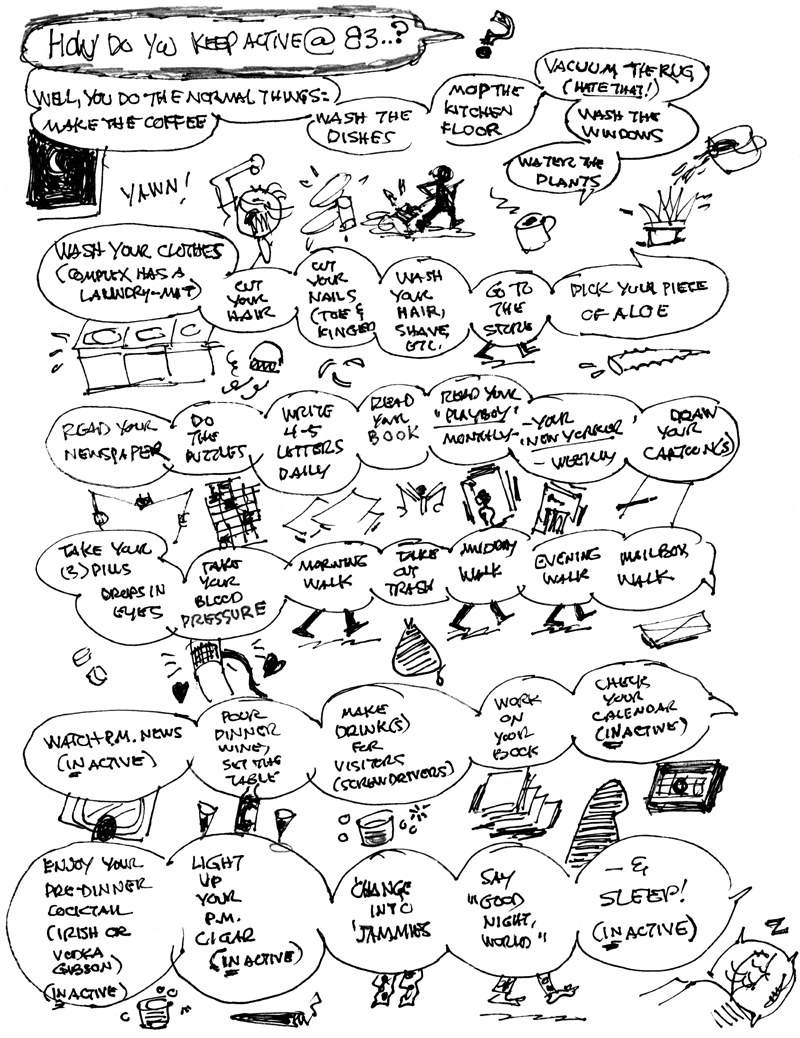 HOW DO YOU KEEP ACTIVE @ 83..?
WELL, YOU DO THE NORMAL THINGS:
MAKE THE COFFEE
WASH THE
DISHES
MOP THE
KITCHEN
FLOOR
VACUUM THE RUG
(HATE THAT!)
WASH THE
WINDOWS
WATER THE
PLANTS
YAWN!
WASH YOUR CLOTHES
(COMPLEX HAS A
LAUNDRY-MAT)
CUT
YOUR
HAIR
CUT
YOUR
NAILS
(TOE &
FINGER)
WASH
YOUR
HAIR,
SHAVE,
ETC.
GO TO
THE
STORE
PICK YOUR PIECE
OF ALOE
READ YOUR
NEWSPAPER
DO
THE
PUZZLES
WRITE
4-5
LETTERS
DAILY
READ
YOUR
BOOK
READ YOUR
"PLAYBOY"
MONTHLY-
-YOUR
'NEW YORKER'
- WEEKLY
DRAW
YOUR
CARTOON(S)
TAKE YOUR
(3) PILLS
DROPS IN
EYES
TAKE
YOUR
BLOOD
PRESSURE
MORNING
WALK
TAKE
OUT
TRASH
MIDDAY
WALK
EVENING
WALK
MAILBOX
WALK
WATCH P.M. NEWS
(INACTIVE)
POUR
DINNER
WINE,
SET THE
TABLE
MAKE
DRINK(S)
FOR
VISITERS
(SCREWDRIVERS)
WORK
ON
YOUR
BOOK
CHECK
YOUR
CALENDAR
(INACTIVE)
ENJOY YOUR
PRE-DINNER
COCKTAIL
(IRISH OR
VODKA
GIBSON)
(INACTIVE)
LIGHT
UP
YOUR
P.M.
CIGAR
(INACTIVE)
CHANGE
INTO
'JAMMIES
SAY
"GOOD
NIGHT,
WORLD"
— &
SLEEP!
(INACTIVE)
Z